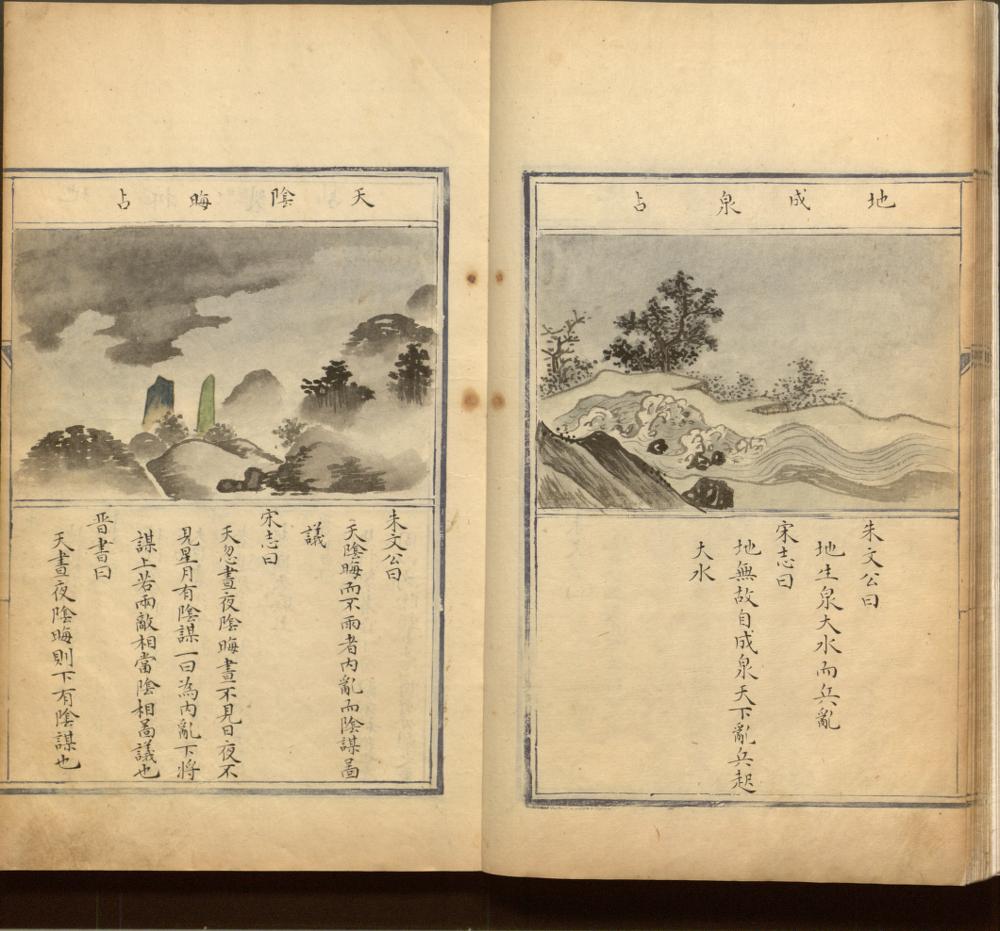 地成泉占
朱文公曰
地生泉大水而兵亂
宋志曰
地無故自成泉天下亂兵起
大水
天陰晦占
朱文公曰
天陰晦而不雨者內亂而陰謀啚
議
宋志曰
天忽晝夜陰晦晝不見日夜不
見星月有陰謀一曰為內亂下将
謀上若兩敵相當陰相啚議也
晋書曰
天晝夜陰晦則下有陰謀也